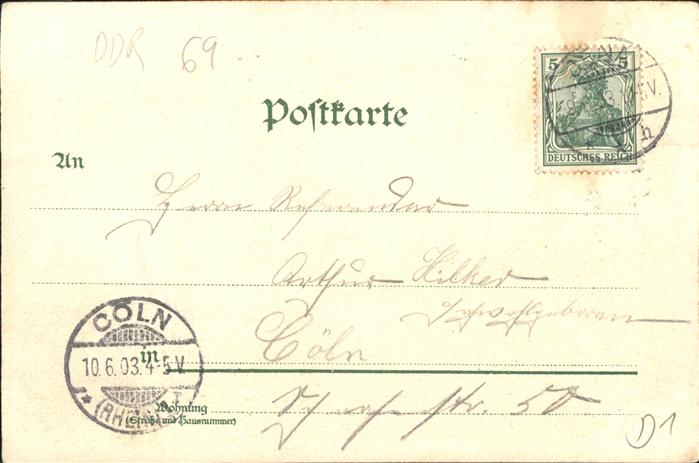 DDR 69
Postkarte
5 5
DEUTSCHES REICH
An
Herrn Referendar
Arthur Hilker
Hochwohlgeboren
CÖLN
Cöln
in
10.6.03.4-5V.
(RHEIN)
Wohnung
(Straße und Hausnummer)
str. 50
D1